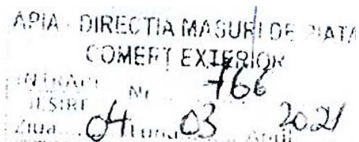 APIA - DIRECTIA MASURI DE PIATA
COMERT EXTERIOR
INTRARE Nr. 766
IESIRE
Ziua 04 Luna 03 Anul 2021